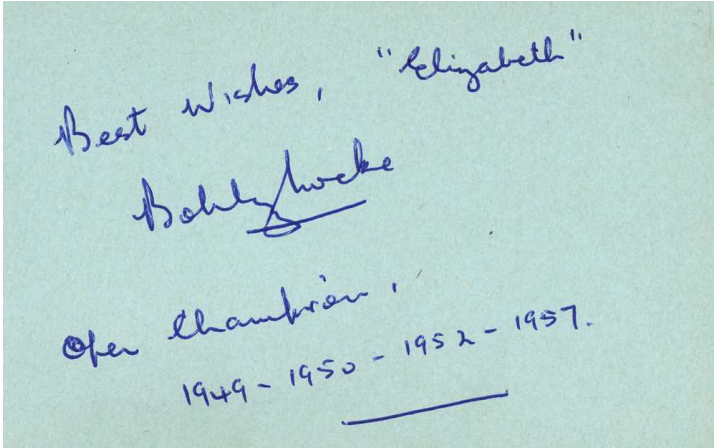 Best Wishes, "Elizabeth"
Bobby Locke
Open Champion,
1949 - 1950 - 1952 - 1957.